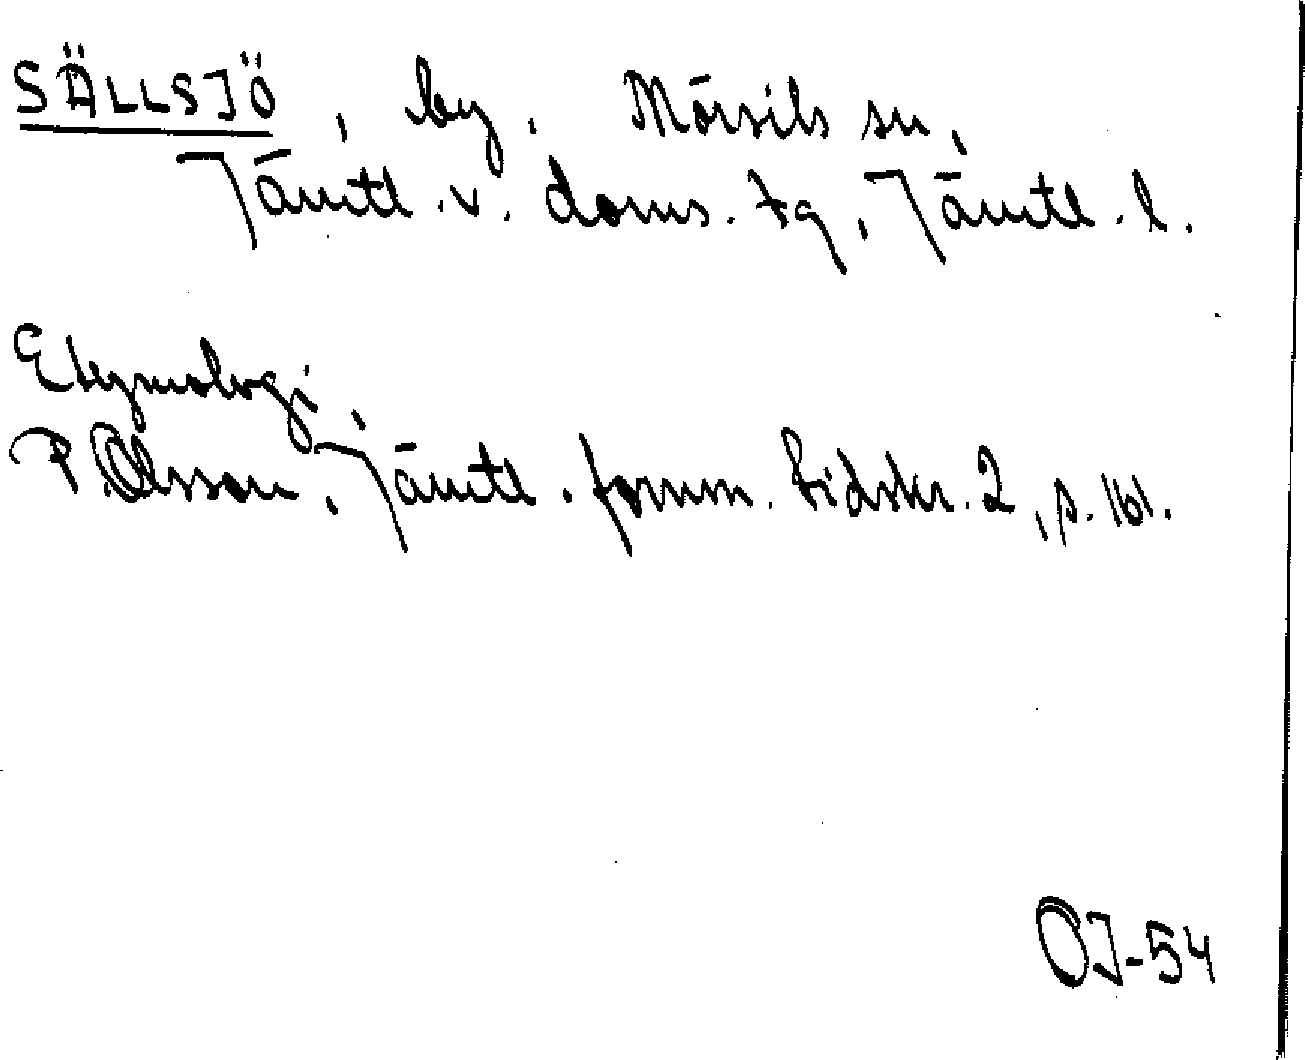 SÄLLSJÖ, by, Mörsils sn,
Jämtl. v. doms. tg, Jämtl. l.
Etymologi,
P. Olsson, Jämtl. fornm. tidskr. 2, s. 161.
OJ-54